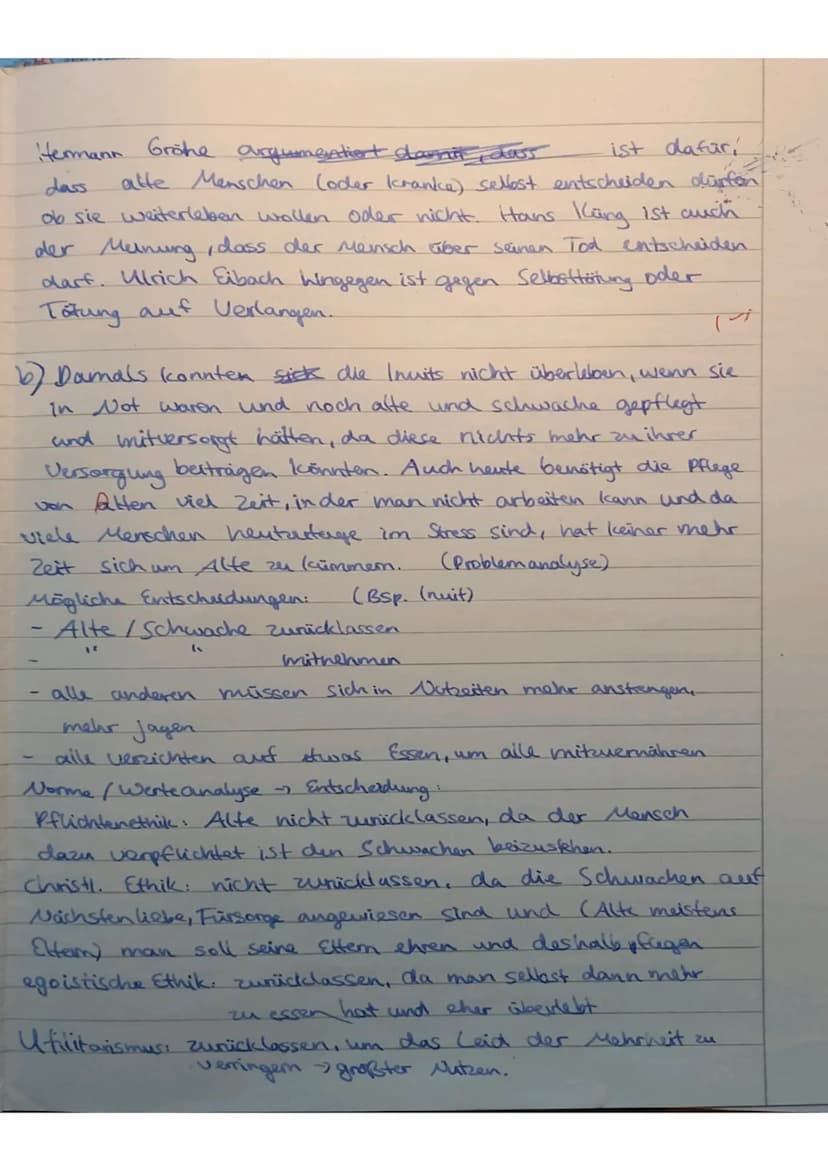 Hermann Gröhe argumentiert damit, dass ist dafür,
dass alte Menschen (oder kranke) selbst entscheiden dürfen
ob sie weiterleben wollen oder nicht. Hans Küng ist auch
der Meinung, dass der Mensch über seinen Tod entscheiden
darf. Ulrich Eibach hingegen ist gegen Selbsttötung oder
Tötung auf Verlangen.
b) Damals konnten sich die Inuits nicht überleben, wenn sie
in Not waren und noch alte und schwache gepflegt
und mitversorgt hätten, da diese nichts mehr zu ihrer
Versorgung beitragen könnten. Auch heute benötigt die Pflege
von Alten viel Zeit, in der man nicht arbeiten kann und da
viele Menschen heutzutage im Stress sind, hat keiner mehr
Zeit sich um Alte zu kümmern. (Problemanalyse)
Mögliche Entscheidungen: (Bsp. Inuit)
- Alte / Schwache zurücklassen
- " " mitnehmen
- alle anderen müssen sich in Notzeiten mehr anstrengen,
mehr jagen
- alle verzichten auf etwas Essen, um alle mitzuernähren
Norme / Werteanalyse → Entscheidung:
Pflichtenethik: Alte nicht zurücklassen, da der Mensch
dazu verpflichtet ist den Schwachen beizustehen.
Christl. Ethik: nicht zurücklassen, da die Schwachen auf
Nächstenliebe, Fürsorge angewiesen sind und (Alte meistens
Eltern) man soll seine Eltern ehren und deshalb pflegen
egoistische Ethik: zurücklassen, da man selbst dann mehr
zu essen hat und eher überlebt
Utilitarismus: zurücklassen, um das Leid der Mehrheit zu
verringern → größter Nutzen.